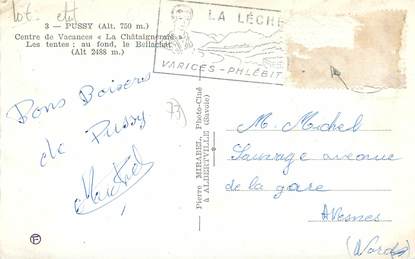 lot. etit
3 — PUSSY (Alt. 750 m.)
Centre de Vacances « La Châtaigneraie »
Les tentes ; au fond, le Bellachat
(Alt 2488 m.)
LA LÉCHÈ
VARICES-PHLÉBIT
Bons Baisers
de Pussy
73)
Pierre MIRABEL, Photo-Ciné
à ALBERTVILLE (Savoie)
M. Michel
Sauvage avenue
de la gare
Avesnes
(Nord)